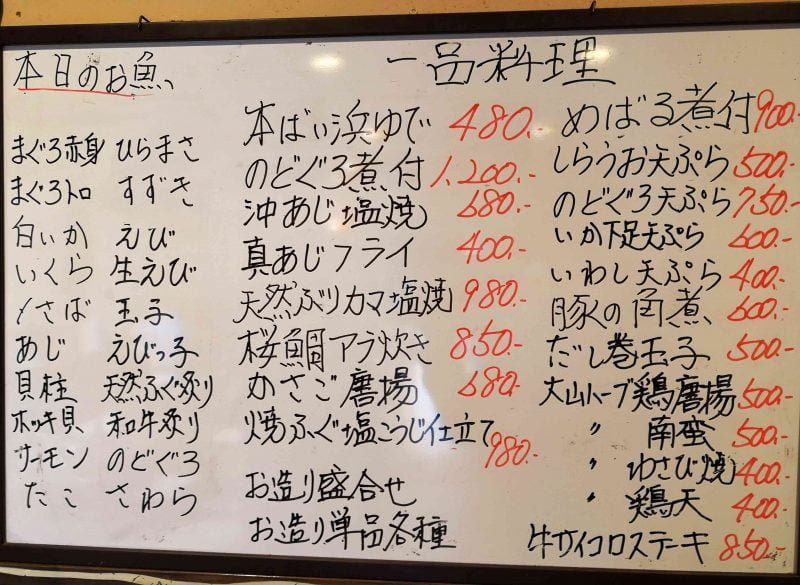 本日のお魚、
まぐろ赤身 ひらまさ
まぐろトロ すずき
白いか えび
いくら 生えび
〆さば 玉子
あじ えびっ子
貝柱 天然ふぐ炙り
ホッキ貝 和牛炙り
サーモン のどぐろ
たこ さわら
一品料理
本ばい浜ゆで 480.-
のどぐろ煮付 1,200.-
沖あじ塩焼 680.-
真あじフライ 400.-
天然ぶりカマ塩焼 980.-
桜鯛アラ炊き 850.-
かさご唐揚 680.-
焼ふぐ塩こうじ仕立て
980.-
お造り盛合せ
お造り単品各種
めばる煮付 900.-
しらうお天ぷら 500.-
のどぐろ天ぷら 750.-
いか下足天ぷら 600.-
いわし天ぷら 400.-
豚の角煮 600.-
だし巻玉子 500.-
大山ハーブ鶏唐揚 500.-
〃 南蛮 500.-
〃 わさび焼 400.-
〃 鶏天 400.-
牛サイコロステーキ 850.-